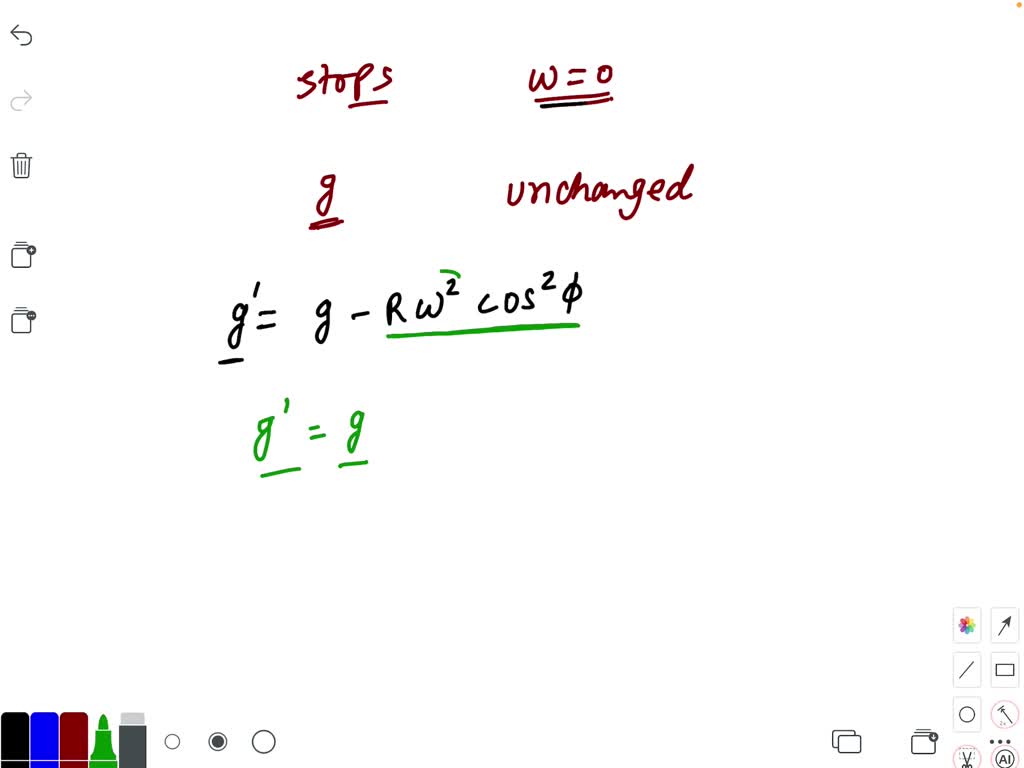 stops ω = 0
g unchanged
g' = g - Rω² cos² ϕ
g' = g
AI